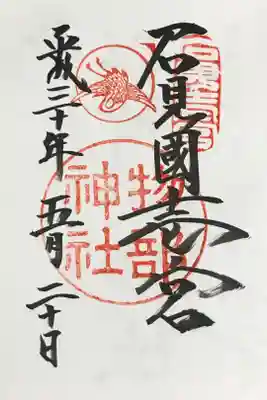 石見國
物部
神社
平成三十年 五月 二十日